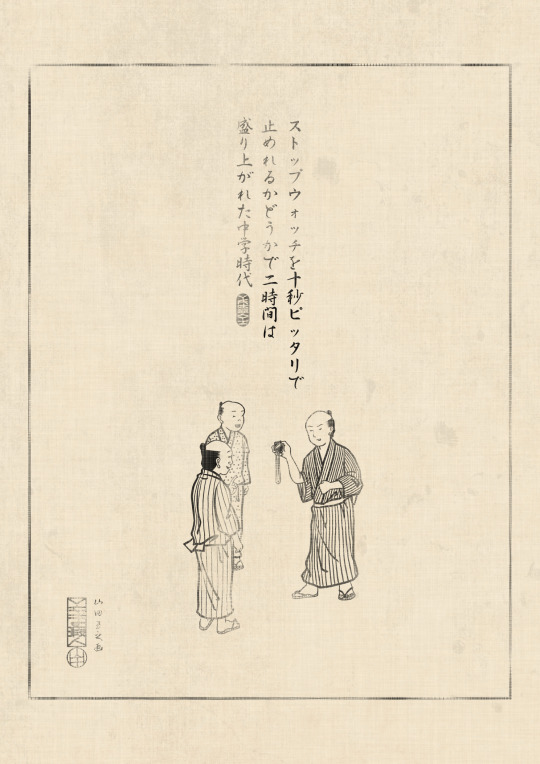 ストップウォッチを十秒ピッタリで
止めれるかどうかで二時間は
盛り上がれた中学時代